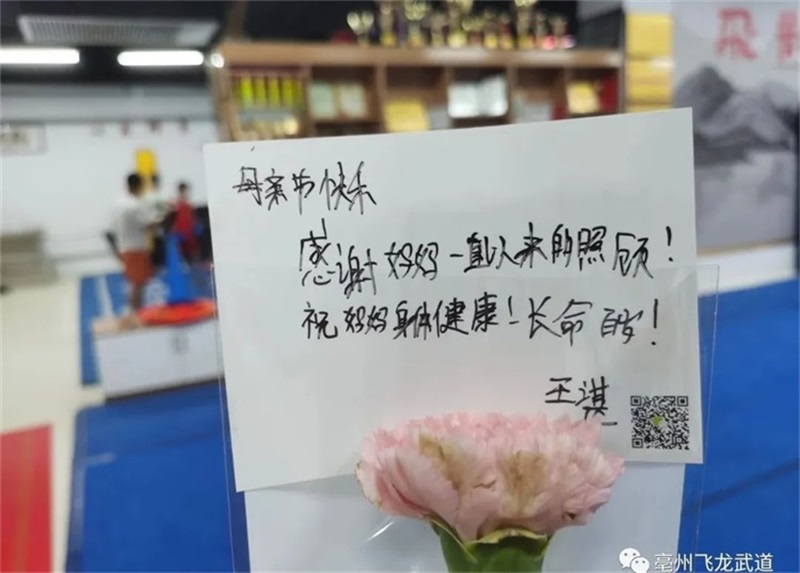 飛
母亲节快乐
感谢妈妈一直以来的照顾！
祝妈妈身体健康！长命百岁！
王淇
亳州飞龙武道